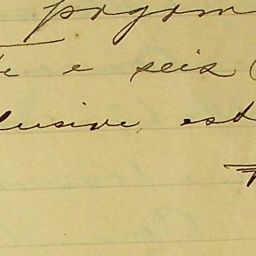 pagam
te e seis (
lusive, est